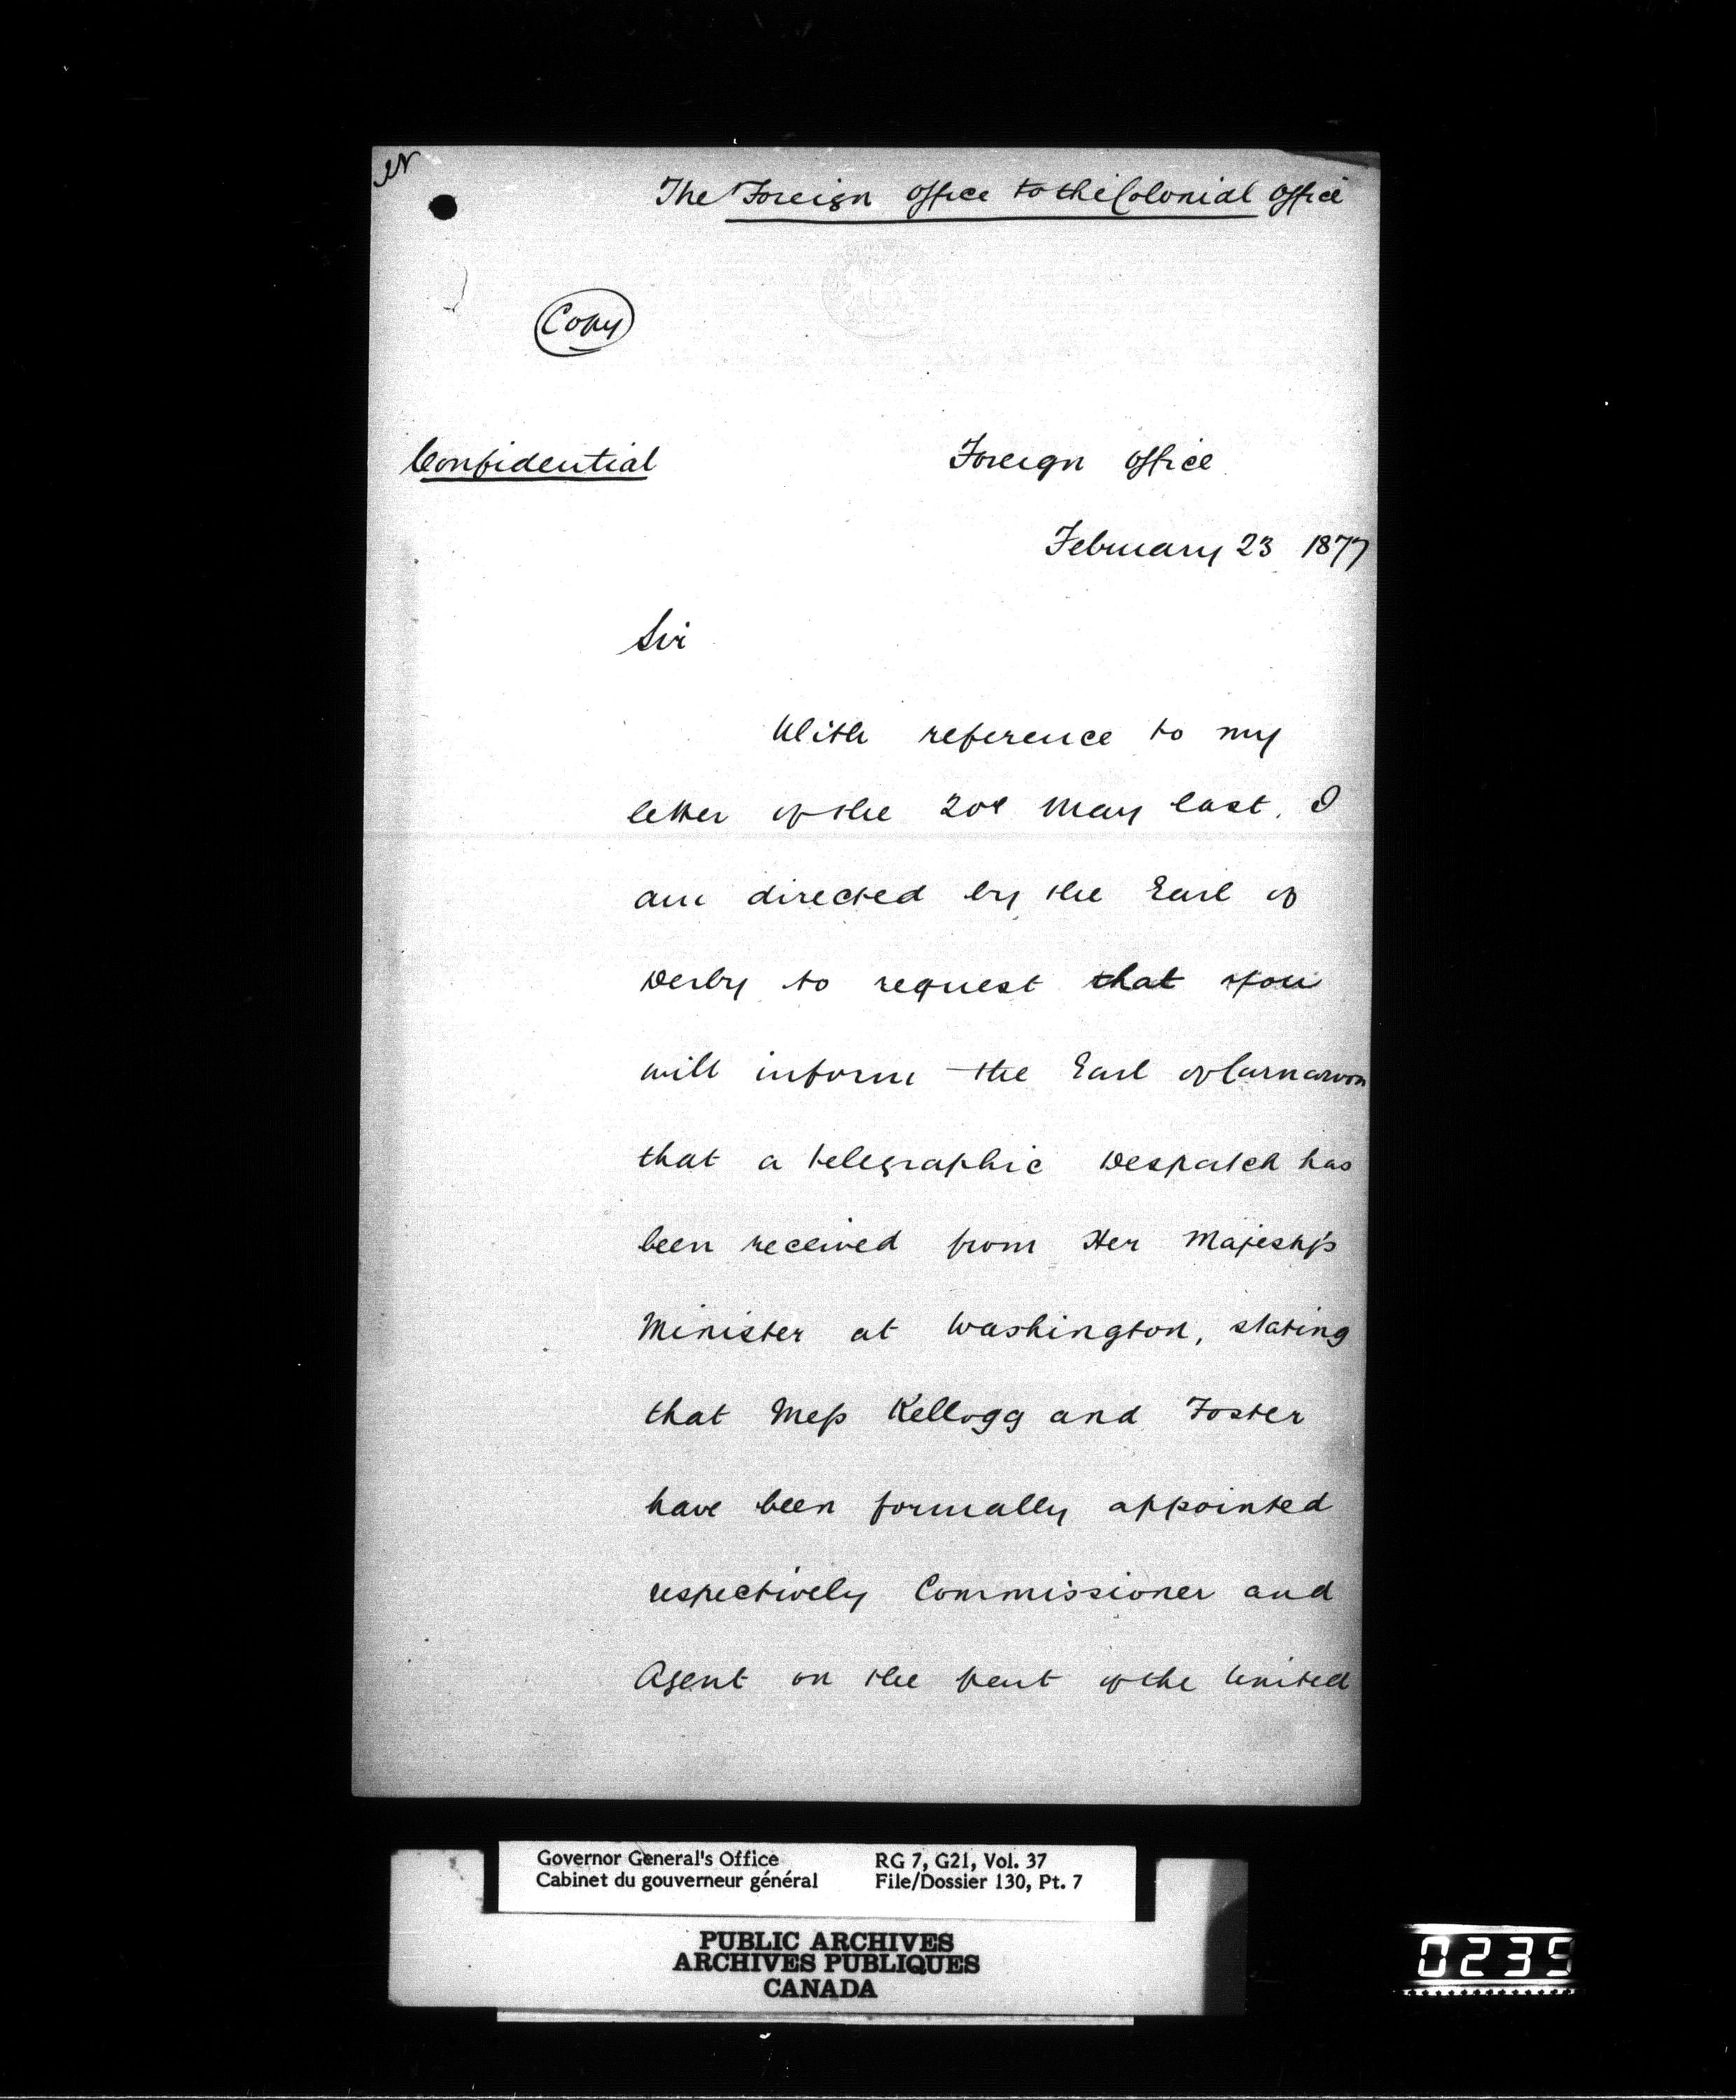 The Foreign Office to the Colonial Office
Copy
Confidential
Foreign Office
February 23 1877
Sir
With reference to my
letter of the May last, I
am directed by the Earl of
Derby to request that you
will inform the Earl of Carnarvon
that a telegraphic Despatch has
been received from Her Majesty's
Minister at Washington, stating
that Mess Kellogg and Foster
have been formally appointed
respectively Commissioner and
Agent on the part of the United
Governor General's Office
Cabinet du gouverneur général
RG 7, G21, Vol. 37
File/Dossier 130, Pt. 7
PUBLIC ARCHIVES
ARCHIVES PUBLIQUES
CANADA
0235